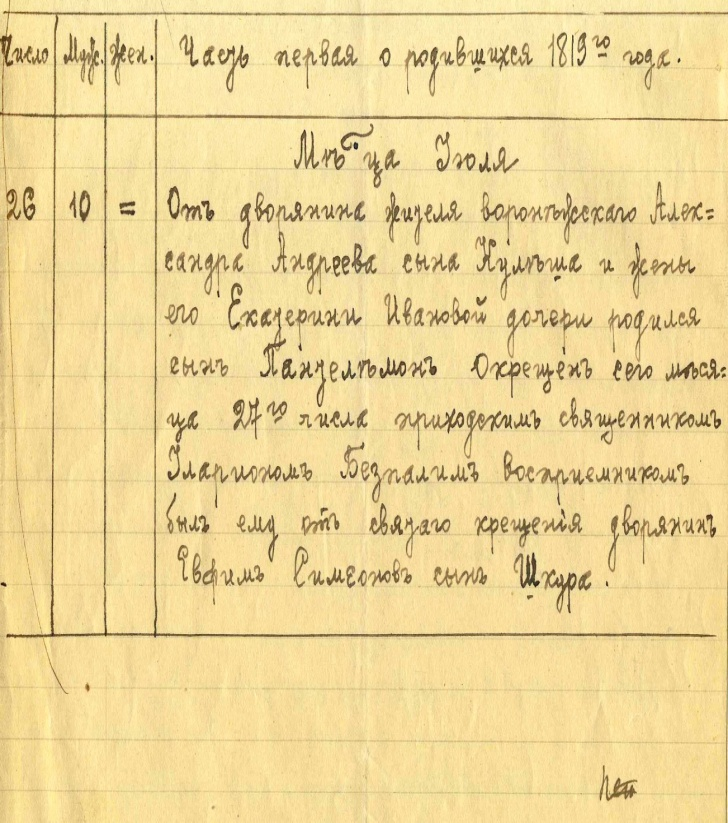 Число Муж. Жен. Часть первая о родившихся 1819го года.
Мѣ·ца Іюля
26 10 = Отъ дворянина жителя воронѣжскаго Алек=
сандра Андреева сына Кулѣша и жены
его Екатерини Ивановой дочери родился
сынъ Пантелѣмонъ Окрещенъ сего мѣся=
ца 27го числа приходскимъ священникомъ
Іларионом Безпалимъ восприемникомъ
былъ ему отъ святаго крещенія дворянинъ
Евфимъ Симеоновъ сынъ Шкура.